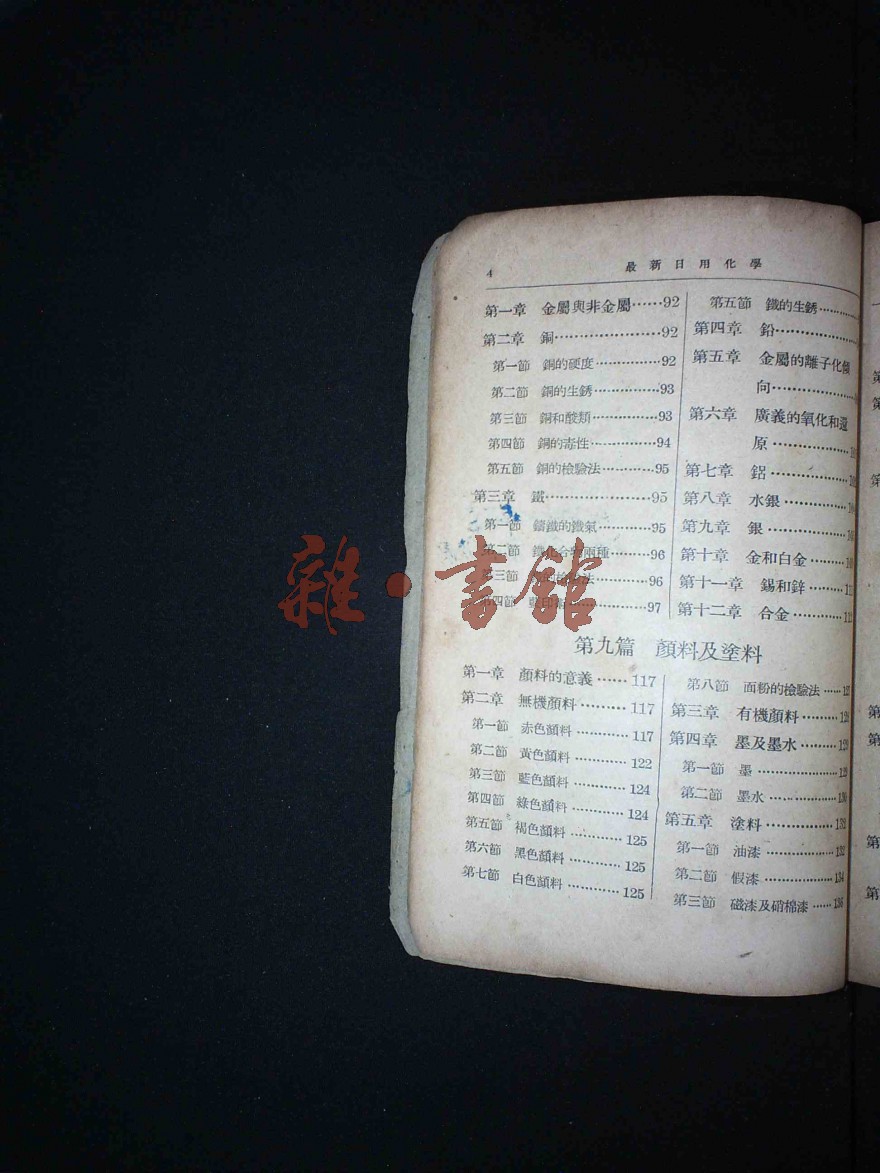 4
最新日用化學
第一章 金屬與非金屬……92
第二章 銅……………………92
第一節 銅的硬度……………92
第二節 銅的生銹……………93
第三節 銅和酸類……………93
第四節 銅的毒性……………94
第五節 銅的檢驗法…………95
第三章 鐵……………………95
第一節 鑄鐵的鐵氣…………95
第二節 鐵化合物兩種………96
第三節 法……………96
第四節 藍印……………97
第五節 鐵的生銹…………
第四章 鉛………………
第五章 金屬的離子化傾
向………………
第六章 廣義的氧化和還
原………………
第七章 鋁………………
第八章 水銀……………
第九章 銀………………
第十章 金和白金………
第十一章 錫和鋅………
第十二章 合金…………
第九篇 顏料及塗料
第一章 顏料的意義……117
第二章 無機顏料………117
第一節 赤色顏料…………117
第二節 黃色顏料…………122
第三節 藍色顏料…………124
第四節 綠色顏料…………124
第五節 褐色顏料…………125
第六節 黑色顏料…………125
第七節 白色顏料…………125
第八節 面粉的檢驗法……
第三章 有機顏料………128
第四章 墨及墨水………129
第一節 墨………………129
第二節 墨水……………130
第五章 塗料……………132
第一節 油漆……………132
第二節 假漆……………134
第三節 磁漆及硝棉漆……136
雜·書館